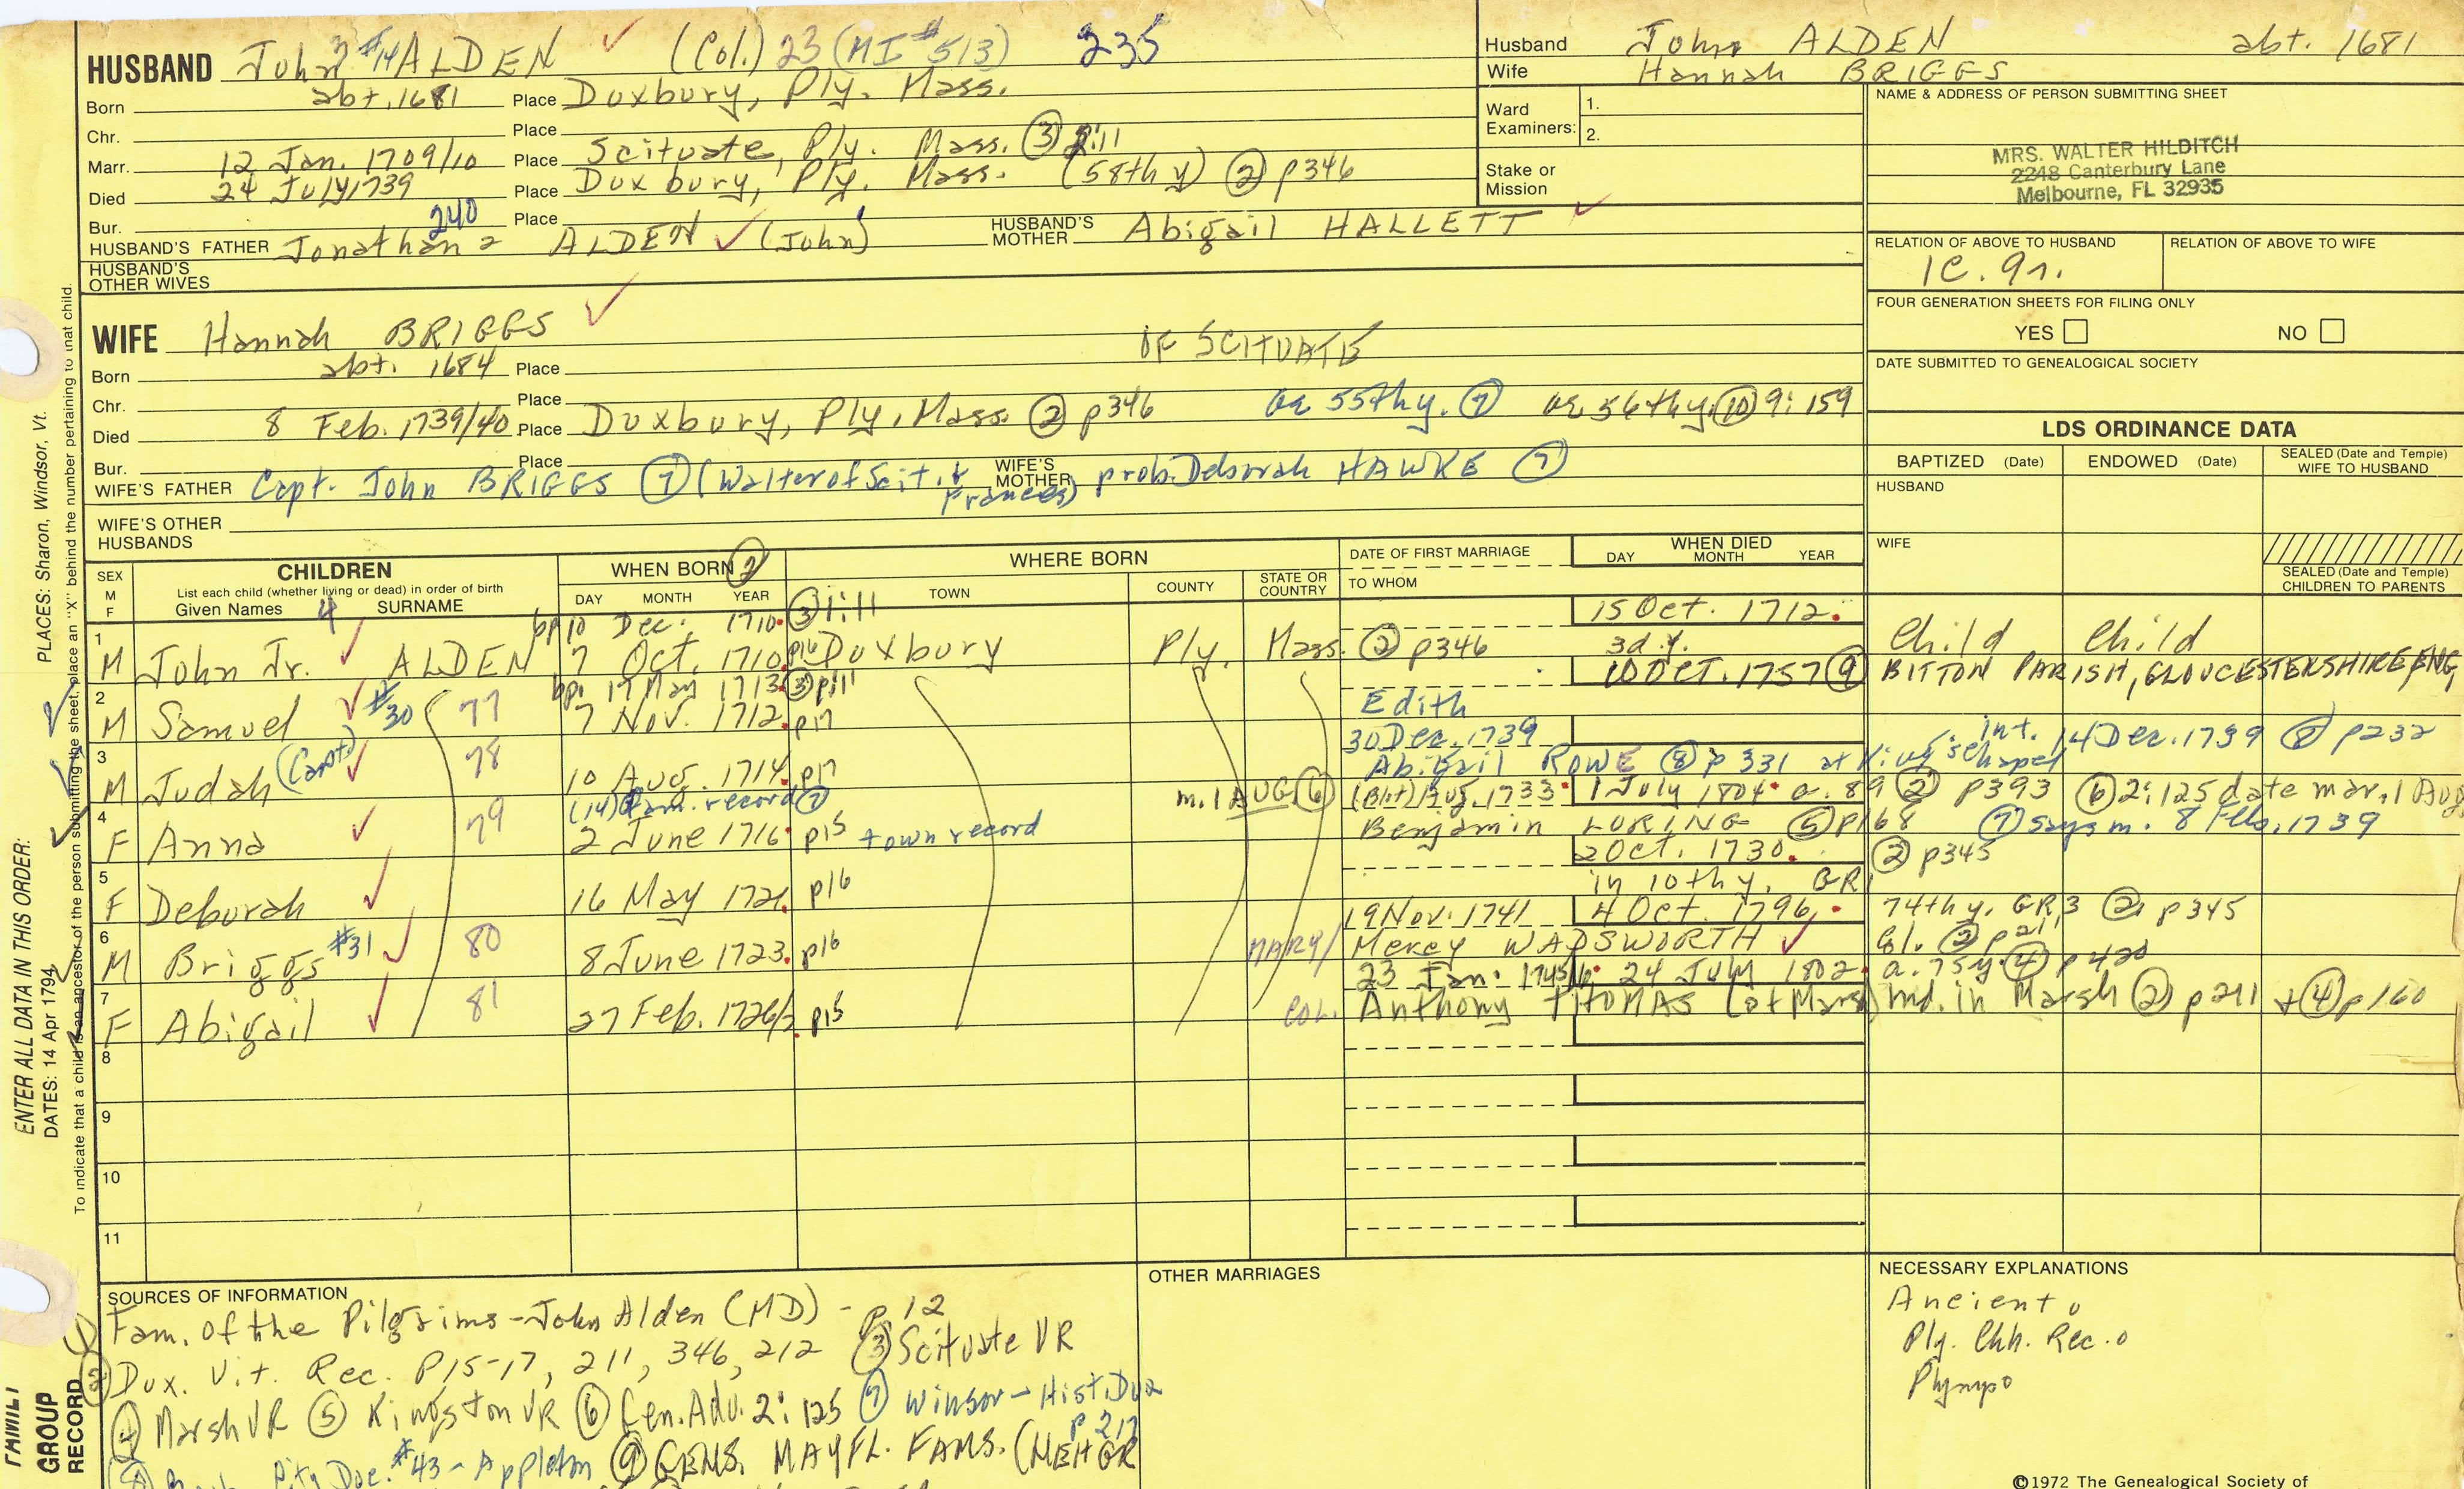 HUSBAND John 3 #14 ALDEN (Col.) 23 (MI #513) 235
Born abt. 1681 Place Duxbury, Ply. Mass.
Chr. Place
Marr. 12 Jan. 1709/10 Place Scituate, Ply. Mass. ③ 2:11
Died 24 July 1739 Place Duxbury, Ply. Mass. (58th y) ② p346
Bur. Place
240
HUSBAND'S FATHER Jonathan 2 ALDEN (John1) HUSBAND'S MOTHER Abigail HALLETT
HUSBAND'S OTHER WIVES
WIFE Hannah BRIGGS OF SCITUATE
Born abt. 1684 Place
Chr. Place
Died 8 Feb. 1739/40 Place Duxbury, Ply, Mass ② p346 ae 55thy. ⑦ ae 56thy. ⑩ 9:159
Bur. Place
WIFE'S FATHER Capt. John BRIGGS ⑦ (Walter of Scit. & Frances) WIFE'S MOTHER prob. Deborah HAWKE ⑦
WIFE'S OTHER HUSBANDS
Husband John ALDEN abt. 1681
Wife Hannah BRIGGS
Ward Examiners: 1.
2.
Stake or Mission
NAME & ADDRESS OF PERSON SUBMITTING SHEET
MRS. WALTER HILDITCH
2248 Canterbury Lane
Melbourne, FL 32935
RELATION OF ABOVE TO HUSBAND RELATION OF ABOVE TO WIFE
1C. 9r.
FOUR GENERATION SHEETS FOR FILING ONLY
YES NO
DATE SUBMITTED TO GENEALOGICAL SOCIETY
LDS ORDINANCE DATA
BAPTIZED (Date) ENDOWED (Date) SEALED (Date and Temple) WIFE TO HUSBAND
HUSBAND
WIFE
SEALED (Date and Temple) CHILDREN TO PARENTS
SEX M F CHILDREN WHEN BORN ② WHERE BORN DATE OF FIRST MARRIAGE WHEN DIED
List each child (whether living or dead) in order of birth
Given Names 4 SURNAME DAY MONTH YEAR TOWN COUNTY STATE OR COUNTRY TO WHOM DAY MONTH YEAR
bp 10 Dec. 1710. ③ 1:11 15 Oct. 1712.
1 M John Jr. ALDEN 7 Oct. 1710. p16 Duxbury Ply. Mass. ② p346 3d.y. Child Child
bp. 17 May 1713. ③ p11 10 OCT. 1757 ⑨ BITTON PARISH, GLOUCESTERSHIRE ENG
2 M Samuel #30 77 7 Nov. 1712. p17 Edith
30 Dec. 1739 int. 14 Dec. 1739 ⑧ p232
3 M Judah (Capt) 78 10 Aug. 1714. p17 Abigail ROWE ⑧ p 331 at King's Chapel
(14) Fam. record ⑦ m. 1 AUG ⑥ (Bet) Aug. 1733. 1 July 1804. a. 89 ② p393 ⑥ 2:125 date mar. 1 Aug
4 F Anna 79 2 June 1716. p15 town record Benjamin LORING ⑤ p168 ⑦ says m. 8 Feb. 1739
2 Oct. 1730. ② p345
5 F Deborah 16 May 1721. p16 in 10thy. GR1
19 Nov. 1741 4 Oct. 1796. 74th y. GR3 ② p345
6 M Briggs #31 80 8 June 1723. p16 MARY/ Mercy WADSWORTH ② p211
23 Jan. 1745/6. 24 July 1802. a. 75y. ④ p 420
7 F Abigail 81 27 Feb. 1726/7. p15 COL. Anthony THOMAS (of Marsh) md. in Marsh ② p211 + ④ p160
8
9
10
11
SOURCES OF INFORMATION
① Fam. of the Pilgrims-John Alden (MD) - p. 12
② Dux. Vit. Rec. P15-17, 211, 346, 212 ③ Scituate VR
④ Marsh VR ⑤ Kingston VR ⑥ Gen. Adv. 2:125 ⑦ Winsor - Hist. Dux p 217
⑧ City Doc. #43 - Appleton ⑨ GENS. MAYFL. FAMS. (NEHGR
OTHER MARRIAGES
NECESSARY EXPLANATIONS
Ancient
Ply. Chh. Rec.
Plympo
©1972 The Genealogical Society of
ENTER ALL DATA IN THIS ORDER:
DATES: 14 Apr 1794 PLACES: Sharon, Windsor, Vt.
To indicate that a child is an ancestor of the person submitting the sheet, place an "X" behind the number pertaining to that child.
FAMILY GROUP RECORD